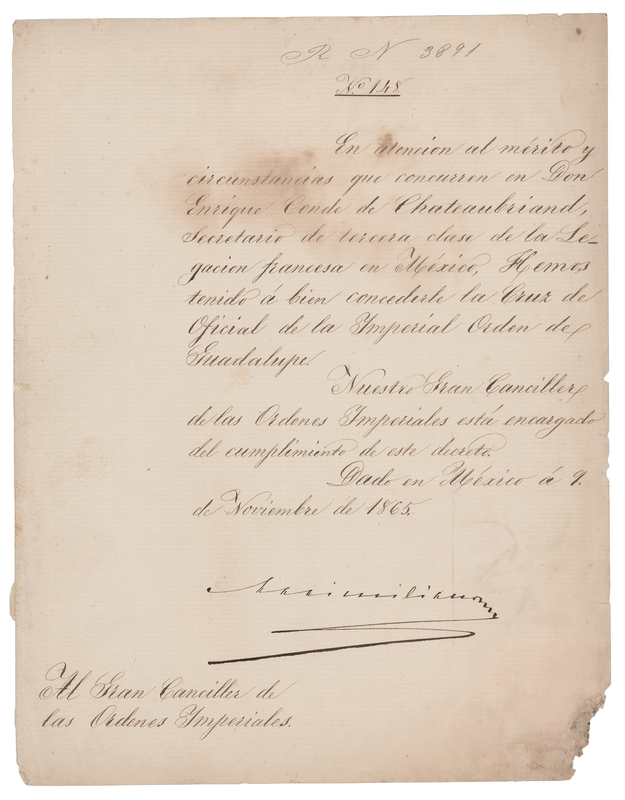 R N 3891
No. 148
En atencion al mérito y
circunstancias que concurren en Don
Enrique Conde de Chateaubriand,
Secretario de tercera clase de la Le-
gacion francesa en México, Hemos
tenido á bien concederle la Cruz de
Oficial de la Imperial Orden de
Guadalupe.
Nuestro Gran Canciller
de las Ordenes Imperiales está encargado
del cumplimiento de este decreto.
Dado en México á 9.
de Noviembre de 1865.
Maximiliano
Al Gran Canciller de
las Ordenes Imperiales.